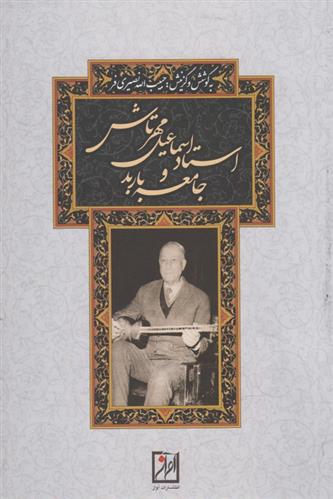 به کوشش و گزینش: حبیب الله نصیری فر
استاد اسماعیل مهرتاش
و
جامعه باربد
آواز
انتشارات آواز